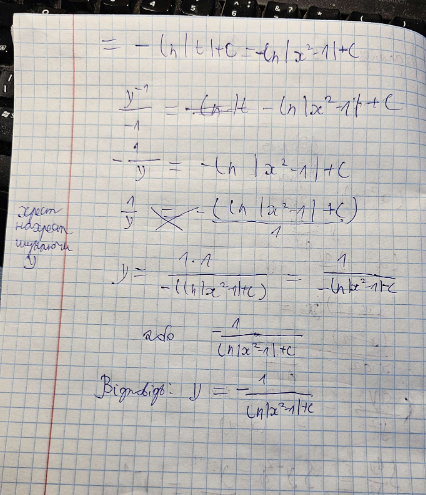 = - ln|t|+C = -ln|x²-1|+C
y⁻¹/-1 = - ln|x²-1| + C
- 1/y = -ln |x²-1|+C
1/y = -(ln|x²-1|+C)/1
хрест
нахрест
шукаючи
y
y = 1·1/-(ln|x²-1|+C) = 1/-ln|x²-1|+C
або - 1/ln|x²-1|+C
Відповідь: y = - 1/ln|x²-1|+C